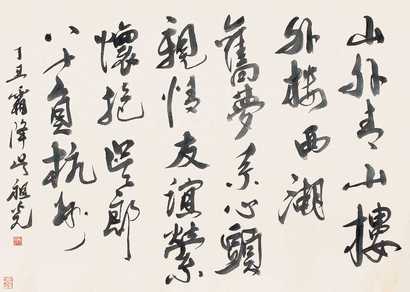 山外青山樓
外樓西湖
舊夢系心頭
親情友誼縈
懷抱吳郎
八十杭州
丁丑霜降吳祖光